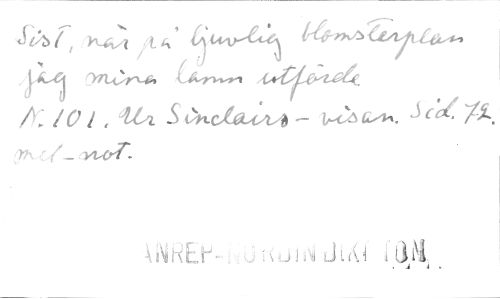 Sist, när på ljuvlig blomsterplan
jag mina lamm utförde
N. 101. Ur Sinclairs-visan. Sid. 72.
mel-not.
ANREP-NORDIN